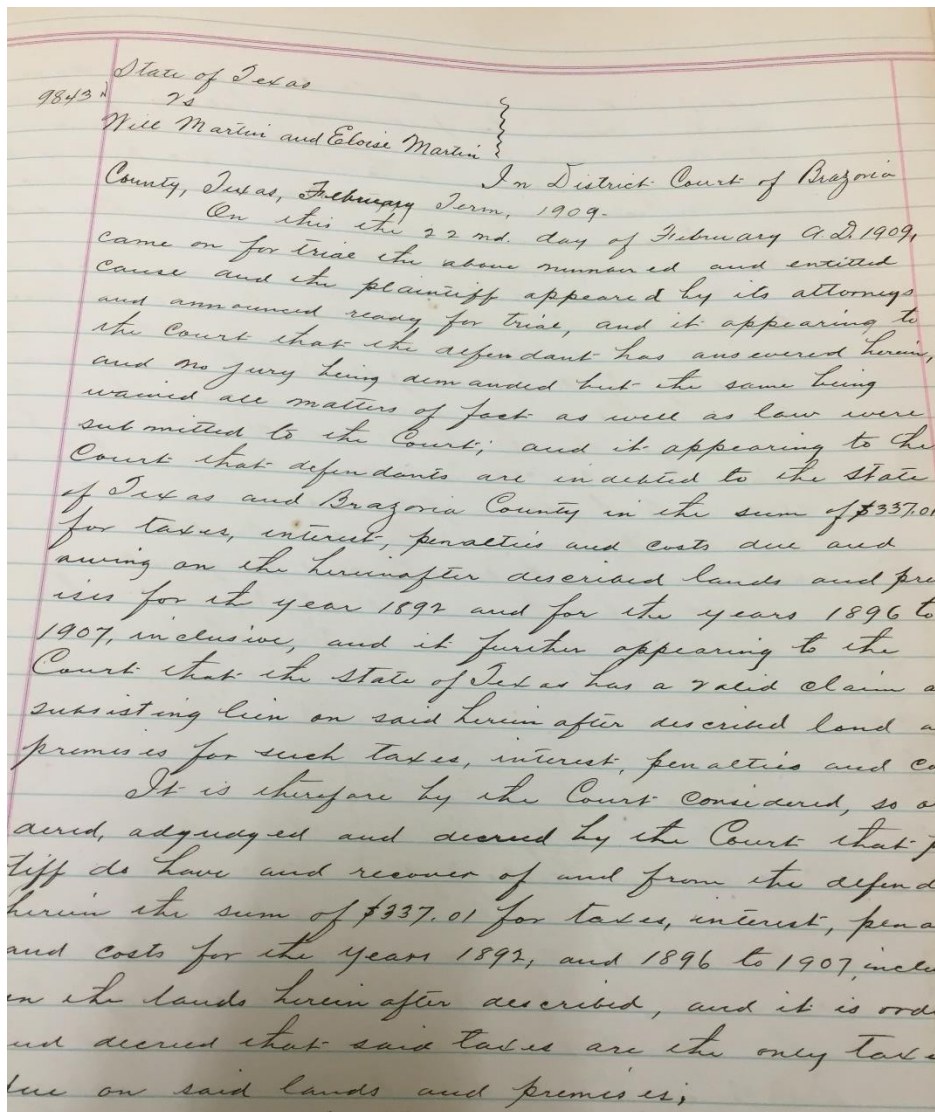 State of Texas
9843 vs
Will Martin and Eloise Martin
In District Court of Brazoria
County, Texas, February Term, 1909.
On this the 22nd. day of February A.D. 1909,
came on for trial the above numbered and entitled
cause and the plaintiff appeared by its attorneys
and announced ready for trial, and it appearing to
the Court that the defendant has answered herein,
and no jury being demanded but the same being
waived all matters of fact as well as law were
submitted to the Court; and it appearing to the
Court that defendants are indebted to the State
of Texas and Brazoria County in the sum of $337.01
for taxes, interest, penalties and costs due and
owing on the hereinafter described lands and pre
ises for the year 1892 and for the years 1896 to
1907, inclusive, and it further appearing to the
Court that the State of Texas has a valid claim a
subsisting lien on said herein after described land a
premises for such taxes, interest, penalties and co
It is therefore by the Court considered, so o
dered, adjudged and decreed by the Court that p
tiff do have and recover of and from the defend
herein the sum of $337.01 for taxes, interest, pena
and costs for the years 1892, and 1896 to 1907, inclu
on the lands herein after described, and it is ord
and decreed that said taxes are the only taxe
due on said lands and premises;